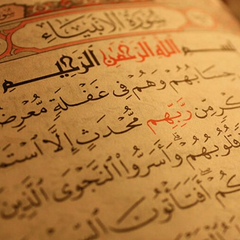 سُورَةُ الأَنبِيَاءِ
بِسْمِ اللَّهِ الرَّحْمَٰنِ الرَّحِيمِ
حِسَابُهُمْ وَهُمْ فِي غَفْلَةٍ مُّعْرِضُ
كْرٍ مِّن رَّبِّهِم مُّحْدَثٍ إِلَّا اسْتَ
قُلُوبُهُمْ وَأَسَرُّوا النَّجْوَى الَّذِينَ
كُمْ أَفَتَأْتُونَ السِّ